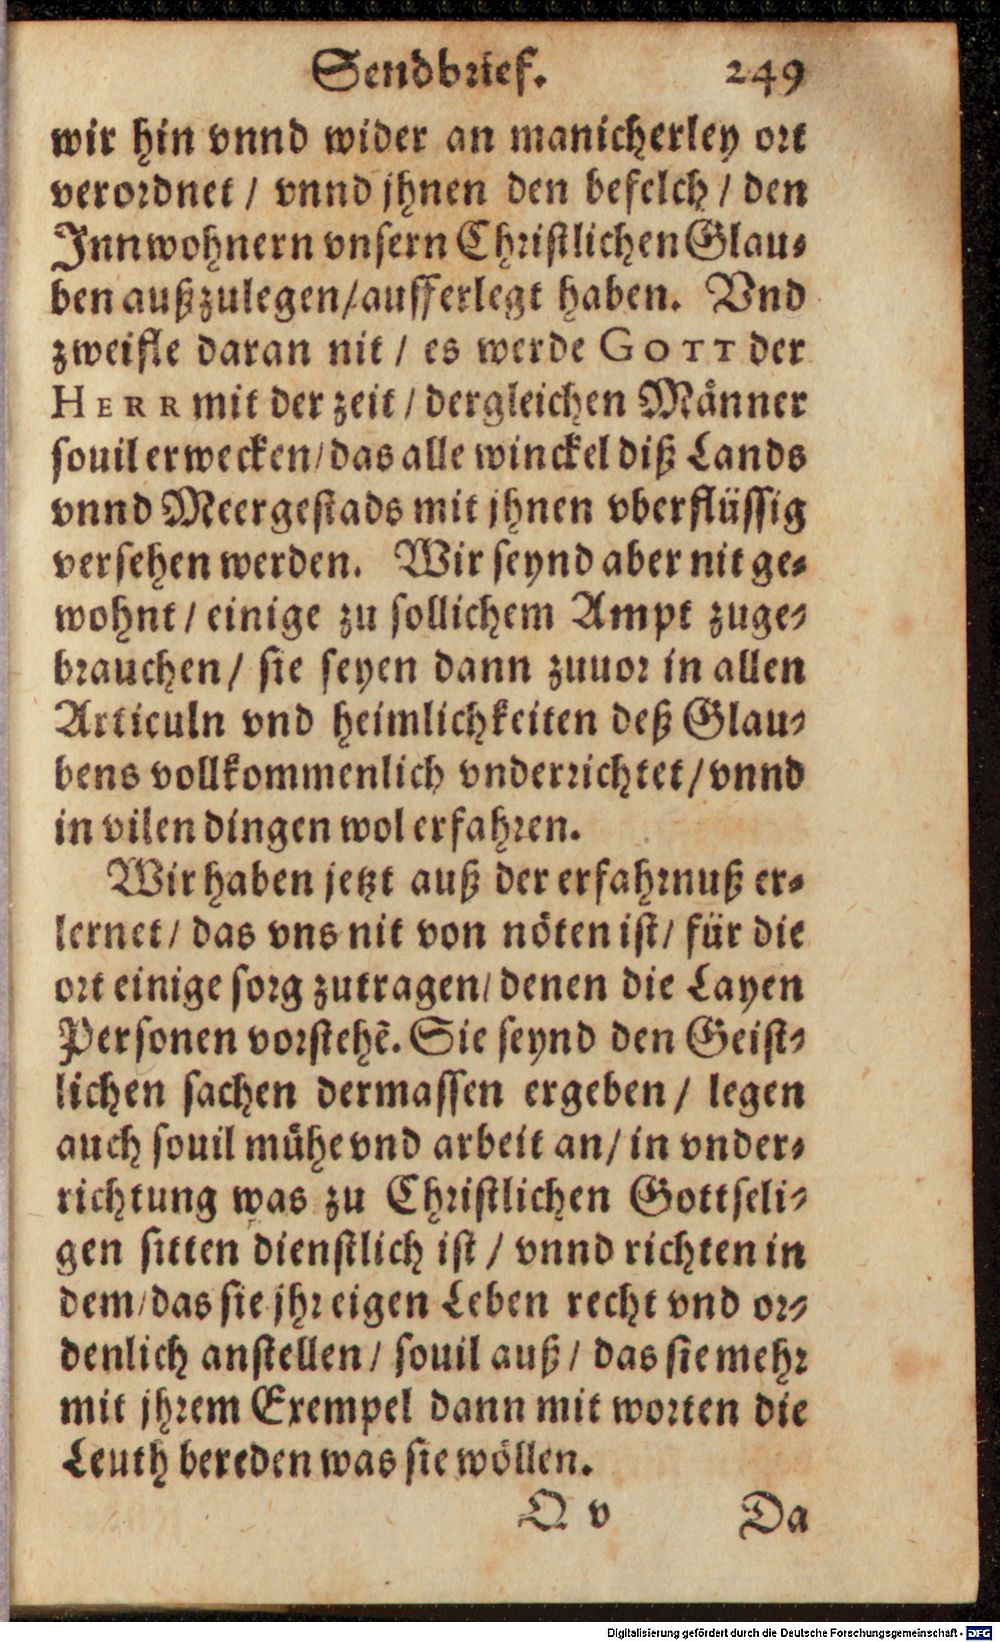 Sendbrief. 249
wir hin vnnd wider an manicherley ort
verordnet / vnnd jhnen den befelch / den
Innwohnern vnsern Christlichen Glau⸗
ben außzulegen/aufferlegt haben. Vnd
zweifle daran nit / es werde GOTT der
HERR mit der zeit / dergleichen Maͤnner
souil erwecken/das alle winckel diß Lands
vnnd Meergestads mit jhnen vberflüssig
versehen werden. Wir seynd aber nit ge⸗
wohnt / einige zu sollichem Ampt zuge⸗
brauchen / sie seyen dann zuuor in allen
Articuln vnd heimlichkeiten deß Glau⸗
bens vollkommenlich vnderrichtet / vnnd
in vilen dingen wol erfahren.
Wir haben jetzt auß der erfahrnuß er⸗
lernet / das vns nit von nöten ist / für die
ort einige sorg zutragen/ denen die Layen
Personen vorstehẽ. Sie seynd den Geist⸗
lichen sachen dermassen ergeben / legen
auch souil muͤhe vnd arbeit an / in vnder⸗
richtung was zu Christlichen Gottseli⸗
gen sitten dienstlich ist / vnnd richten in
dem/das sie jhr eigen Leben recht vnd or⸗
denlich anstellen / souil auß / das sie mehr
mit jhrem Exempel dann mit worten die
Leuth bereden was sie wöllen.
Q v Da
Digitalisierung gefördert durch die Deutsche Forschungsgemeinschaft - DFG